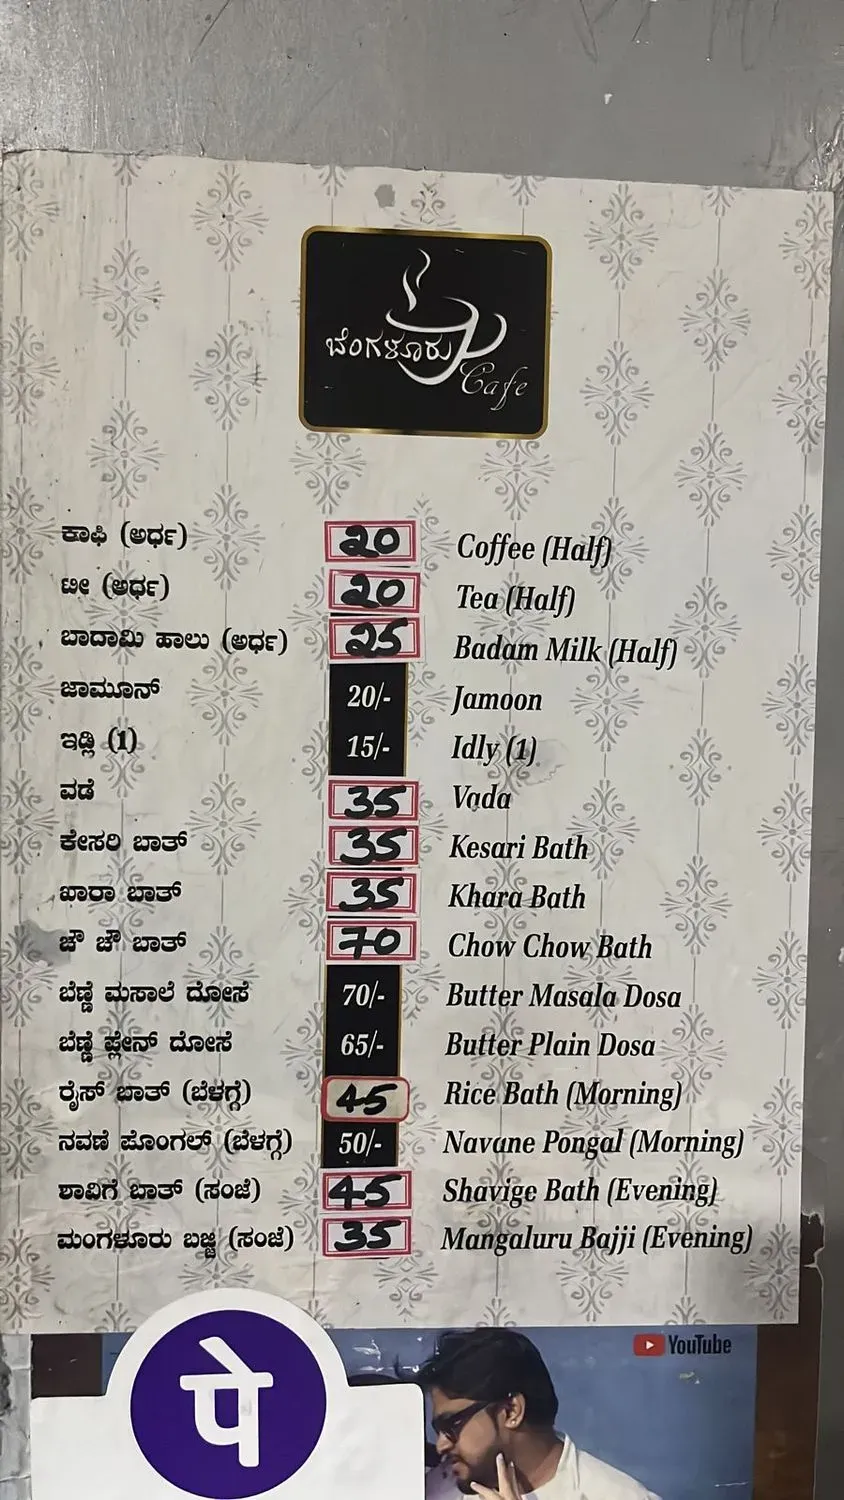 ಬೆಂಗಳೂರು
Cafe
ಕಾಫಿ (ಅರ್ಧ) 20 Coffee (Half)
ಟೀ (ಅರ್ಧ) 20 Tea (Half)
ಬಾದಾಮಿ ಹಾಲು (ಅರ್ಧ) 25 Badam Milk (Half)
ಜಾಮೂನ್ 20/- Jamoon
ಇಡ್ಲಿ (1) 15/- Idly (1)
ವಡೆ 35 Vada
ಕೇಸರಿ ಬಾತ್ 35 Kesari Bath
ಖಾರಾ ಬಾತ್ 35 Khara Bath
ಚೌ ಚೌ ಬಾತ್ 70 Chow Chow Bath
ಬೆಣ್ಣೆ ಮಸಾಲೆ ದೋಸೆ 70/- Butter Masala Dosa
ಬೆಣ್ಣೆ ಪ್ಲೇನ್ ದೋಸೆ 65/- Butter Plain Dosa
ರೈಸ್ ಬಾತ್ (ಬೆಳಗ್ಗೆ) 45 Rice Bath (Morning)
ನವಣೆ ಪೊಂಗಲ್ (ಬೆಳಗ್ಗೆ) 50/- Navane Pongal (Morning)
ಶಾವಿಗೆ ಬಾತ್ (ಸಂಜೆ) 45 Shavige Bath (Evening)
ಮಂಗಳೂರು ಬಜ್ಜಿ (ಸಂಜೆ) 35 Mangaluru Bajji (Evening)
YouTube
पे